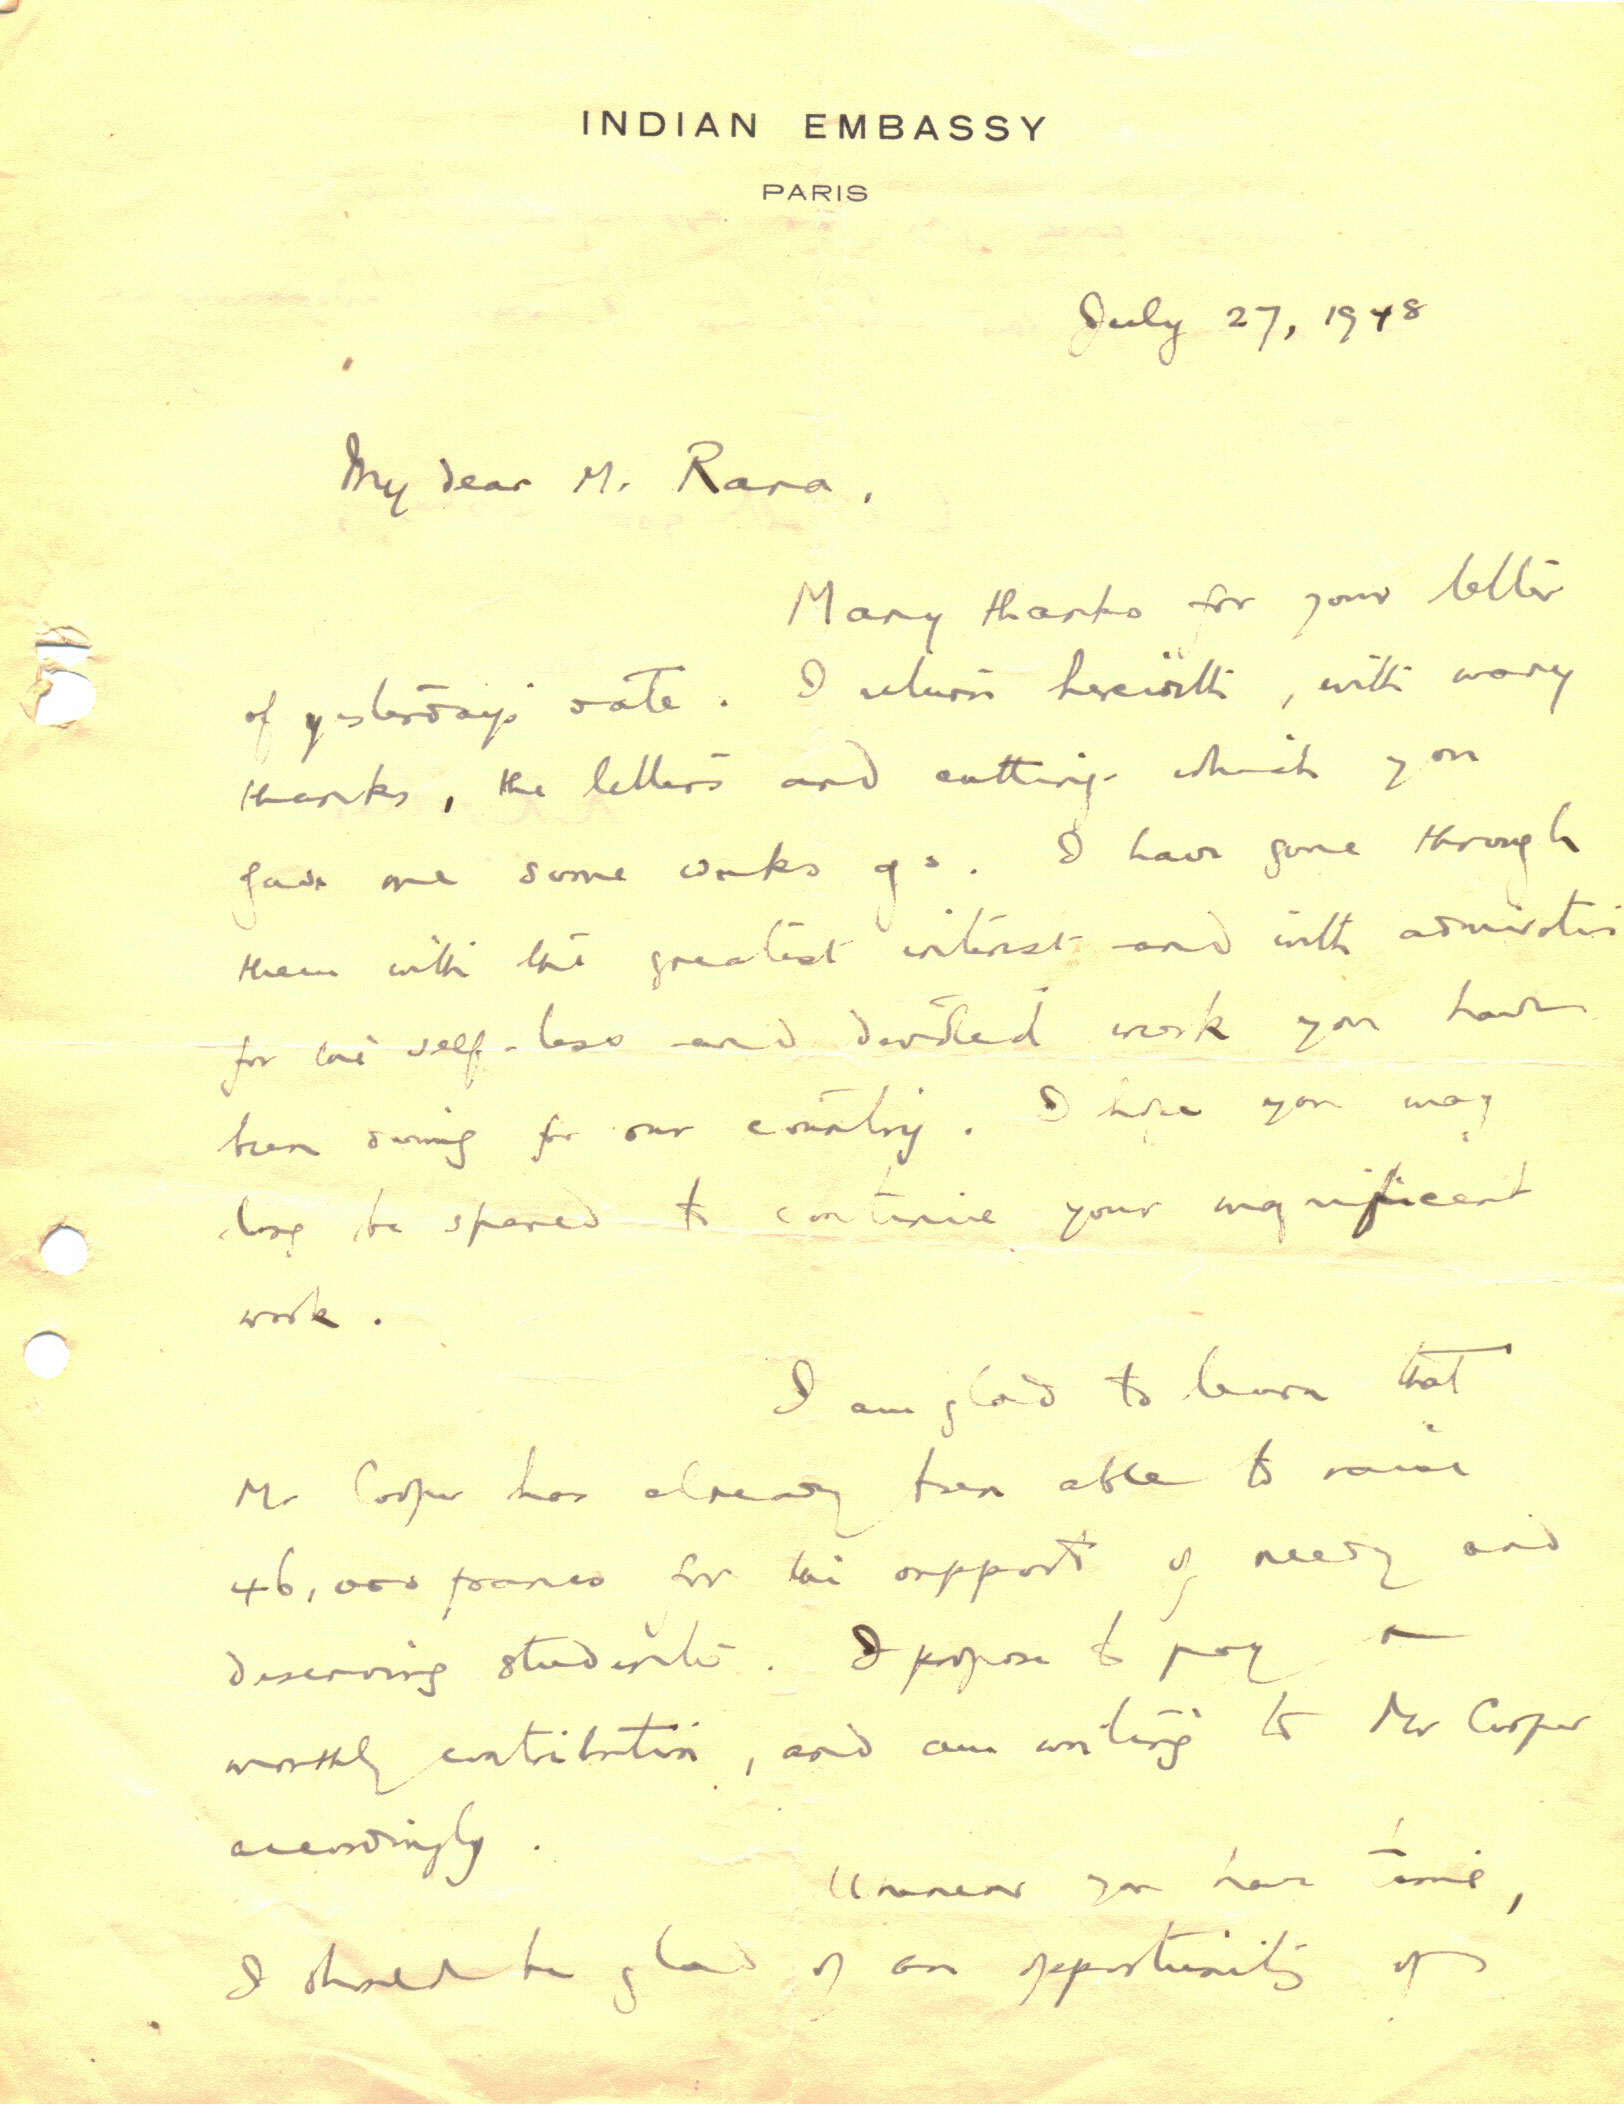 INDIAN EMBASSY
PARIS
July 27, 1948
My dear Mr. Rana,
Many thanks for your letter
of yesterday's date. I return herewith, with many
thanks, the letters and cuttings which you
gave me some weeks ago. I have gone through
them with the greatest interest and with admiration
for the self-less and devoted work you have
been doing for our country. I hope you may
long be spared to continue your magnificent
work.
I am glad to learn that
Mr Cooper has already been able to raise
46,000 francs for the support of needy and
deserving students. I propose to pay a
monthly contribution, and am writing to Mr Cooper
accordingly.
Whenever you have time,
I should be glad of an opportunity of